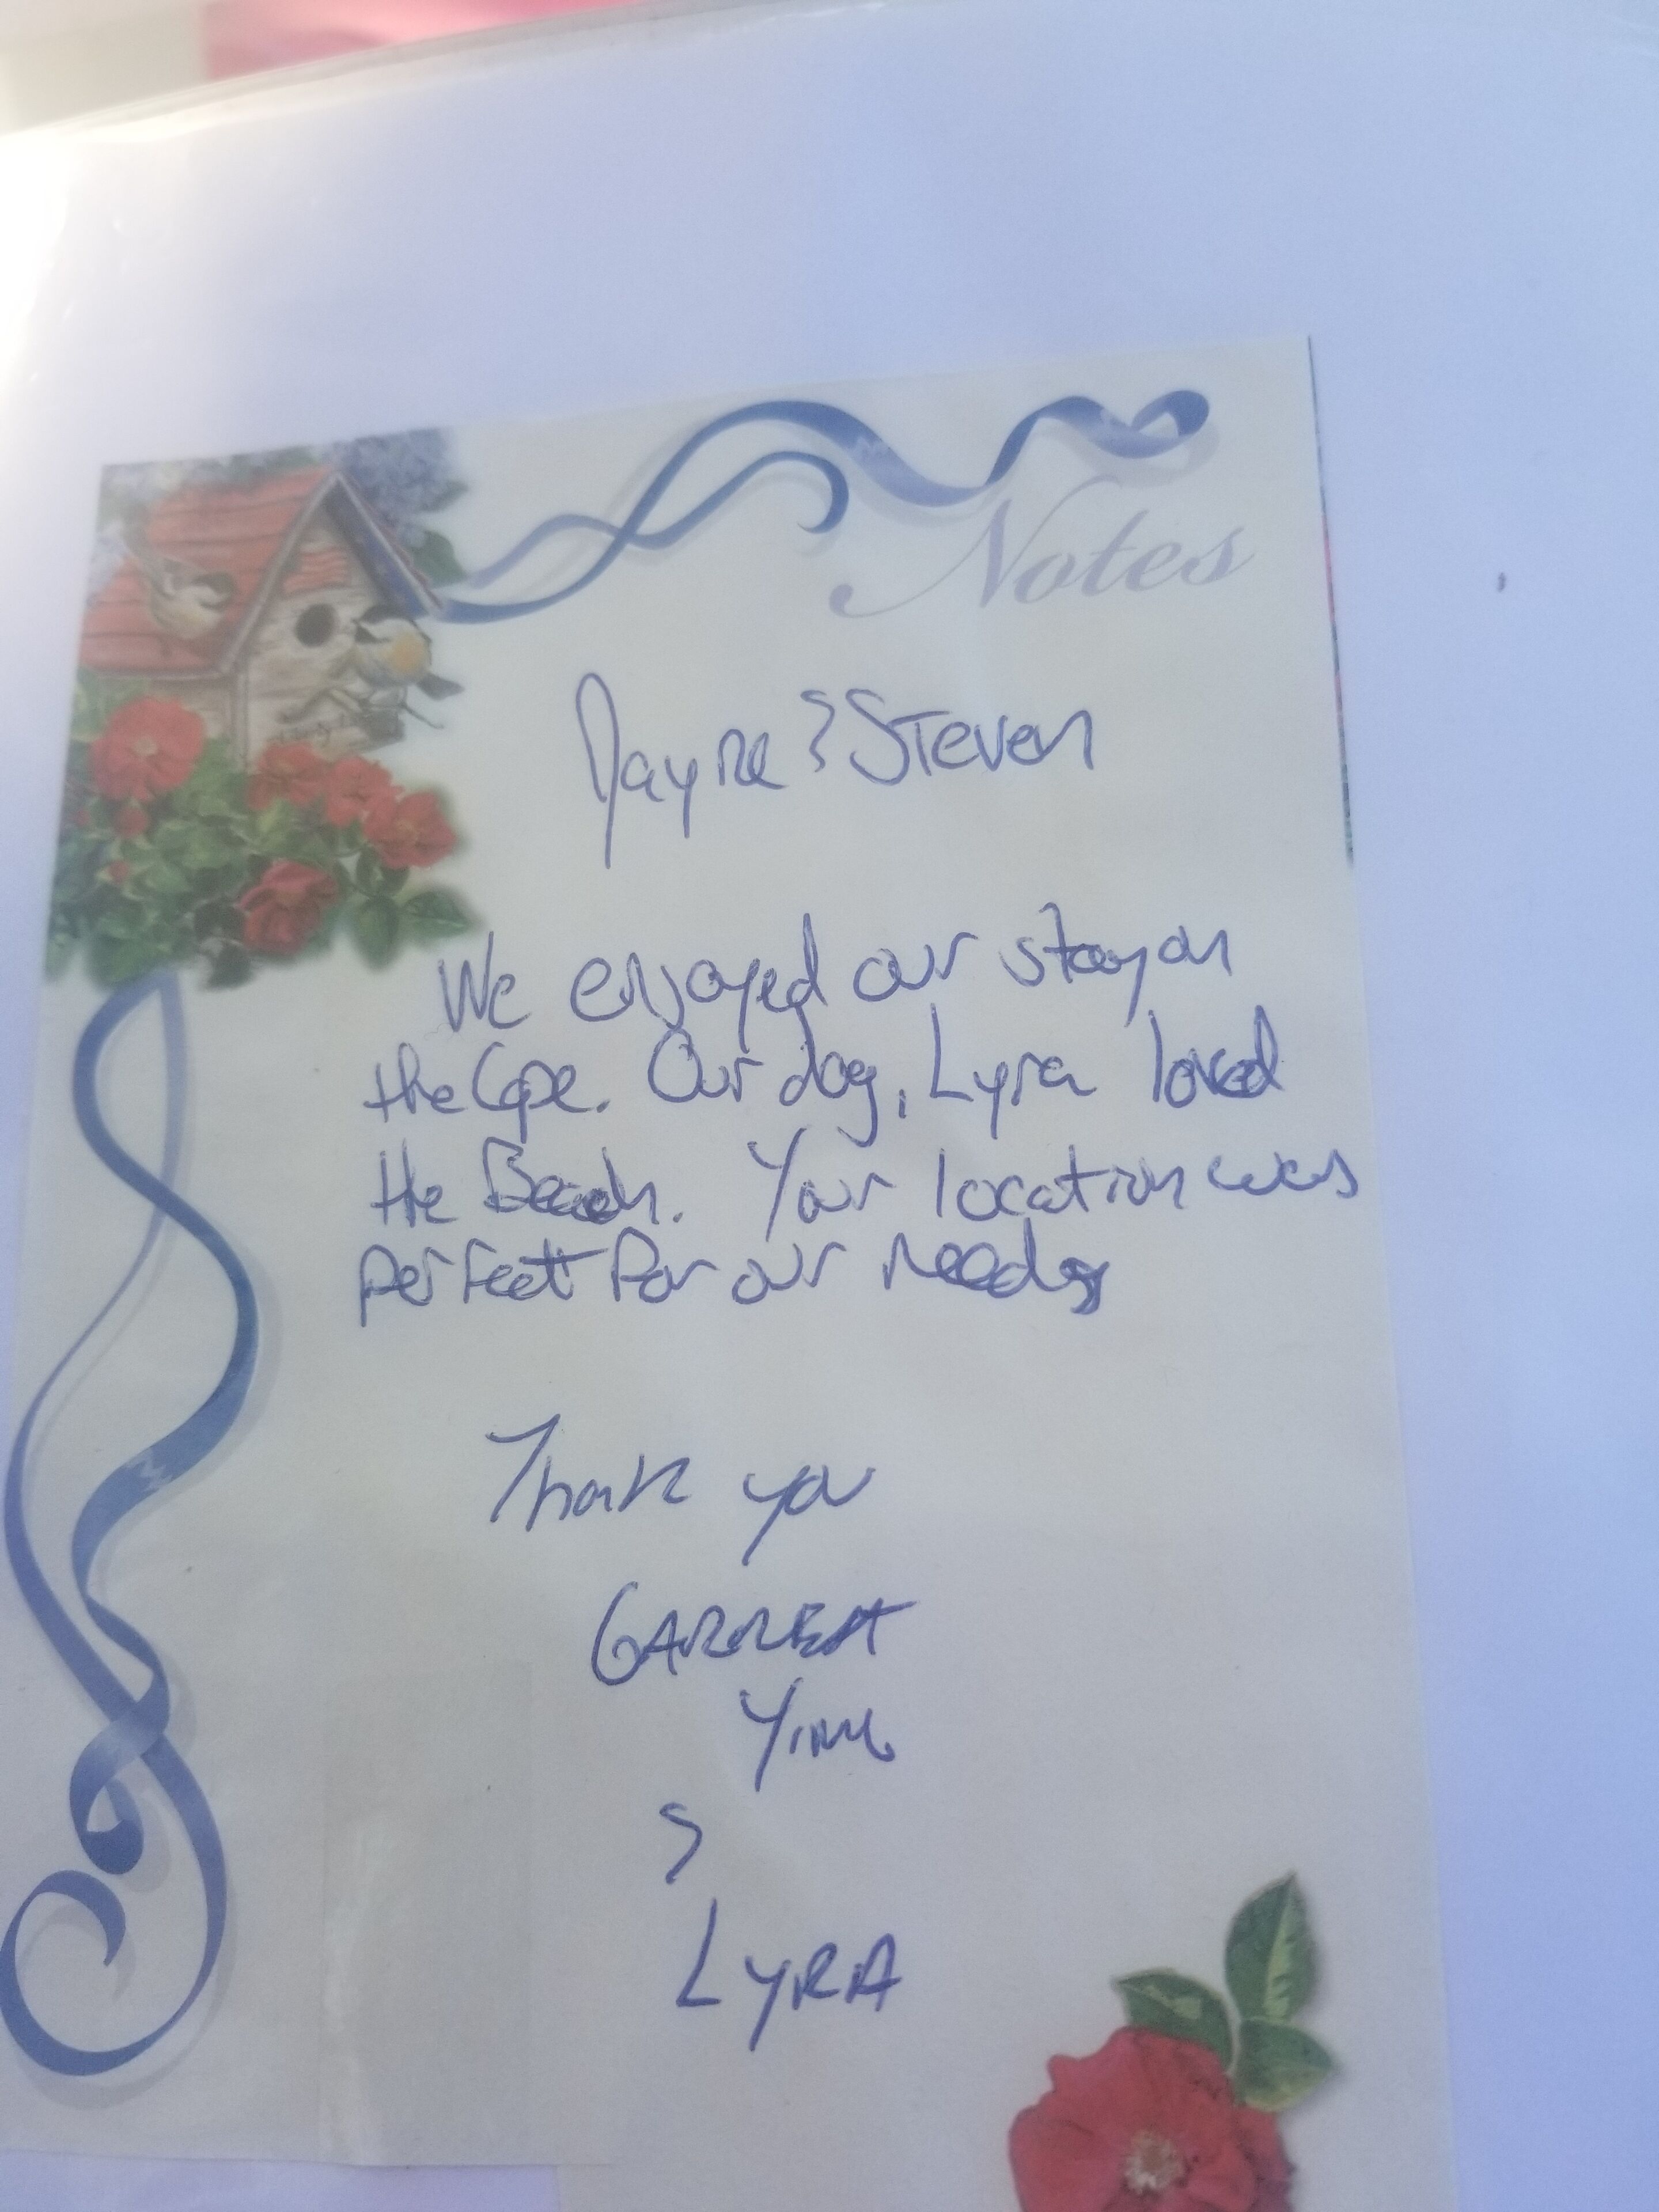 Notes
Jayne & Steven
We enjoyed our stay on
the Cape. Our dog, Lyra loved
the Beach. Your location was
perfect for our needs
Thank you
GARRETT
&
LYRA